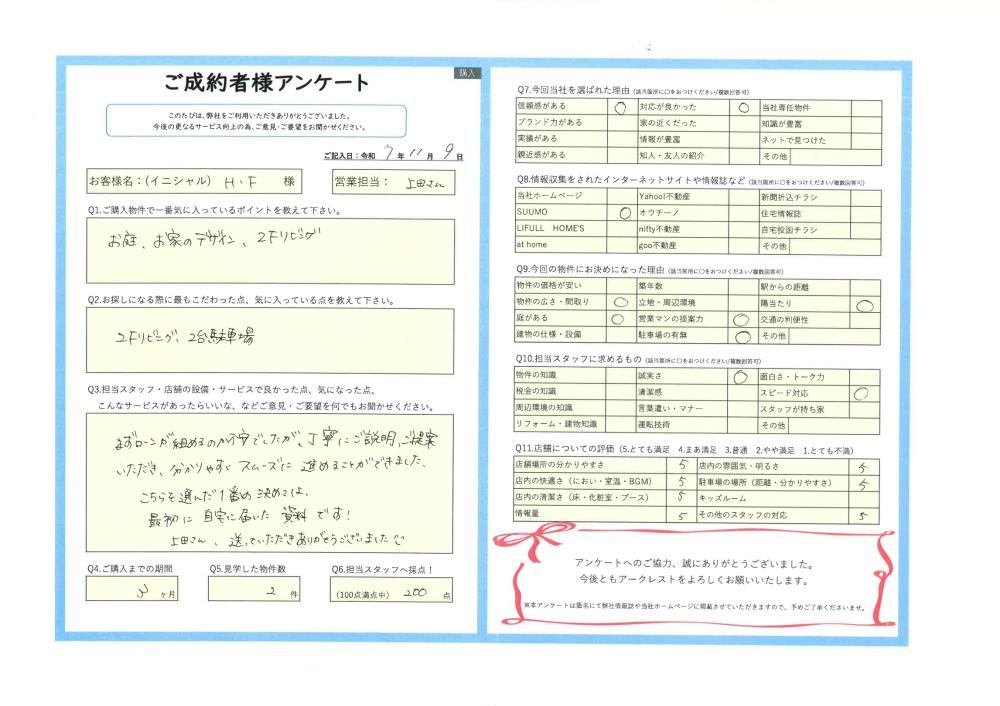 購入
ご成約者様アンケート
このたびは、弊社をご利用いただきありがとうございました。
今後の更なるサービス向上の為、ご意見・ご要望をお聞かせください。
ご記入日：令和 7 年 11 月 9 日
お客様名：（イニシャル） H・F 様
営業担当： 上田さん
Q1.ご購入物件で一番気に入っているポイントを教えて下さい。
お庭、お家のデザイン、2Fリビング
Q2.お探しになる際に最もこだわった点、気に入っている点を教えて下さい。
2Fリビング、2台駐車場
Q3.担当スタッフ・店舗の設備・サービスで良かった点、気になった点、
こんなサービスがあったらいいな、などご意見・ご要望を何でもお聞かせください。
まずローンが組めるのか不安でしたが、丁寧にご説明、ご提案
いただき、分かりやすくスムーズに進めることができました、
こちらを選んだ1番の決めては、
最初に自宅に届いた資料です！
上田さん、送っていただきありがとうございました
Q4.ご購入までの期間
3 ヶ月
Q5.見学した物件数
2 件
Q6.担当スタッフへ採点！
（100点満点中） 200 点
Q7.今回当社を選ばれた理由（該当箇所に○をおつけください/複数回答可）
信頼感がある ○ 対応が良かった ○ 当社専任物件
ブランド力がある 家の近くだった 知識が豊富
実績がある 情報が豊富 ネットで見つけた
親近感がある 知人・友人の紹介 その他
Q8.情報収集をされたインターネットサイトや情報誌など（該当箇所に○をおつけください/複数回答可）
当社ホームページ Yahoo!不動産 新聞折込チラシ
SUUMO ○ オウチーノ 住宅情報誌
LIFULL HOME'S nifty不動産 自宅投函チラシ
at home goo不動産 その他
Q9.今回の物件にお決めになった理由（該当箇所に○をおつけください/複数回答可）
物件の価格が安い 築年数 駅からの距離
物件の広さ・間取り ○ 立地・周辺環境 陽当たり ○
庭がある ○ 営業マンの提案力 ○ 交通の利便性
建物の仕様・設備 駐車場の有無 ○ その他
Q10.担当スタッフに求めるもの（該当箇所に○をおつけください/複数回答可）
物件の知識 誠実さ ○ 面白さ・トーク力
税金の知識 清潔感 スピード対応 ○
周辺環境の知識 言葉遣い・マナー スタッフが持ち家
リフォーム・建物知識 運転技術 その他
Q11.店舗についての評価（5.とても満足 4.まあ満足 3.普通 2.やや満足 1.とても不満）
店舗場所の分かりやすさ 5 店内の雰囲気・明るさ 5
店内の快適さ（におい・室温・BGM） 5 駐車場の場所（距離・分かりやすさ） 5
店内の清潔さ（床・化粧室・ブース） 5 キッズルーム
情報量 5 その他のスタッフの対応 5
アンケートへのご協力、誠にありがとうございました。
今後ともアークレストをよろしくお願いいたします。
※本アンケートは匿名にて弊社情報誌や当社ホームページに掲載させていただきますので、予めご了承くださいませ。